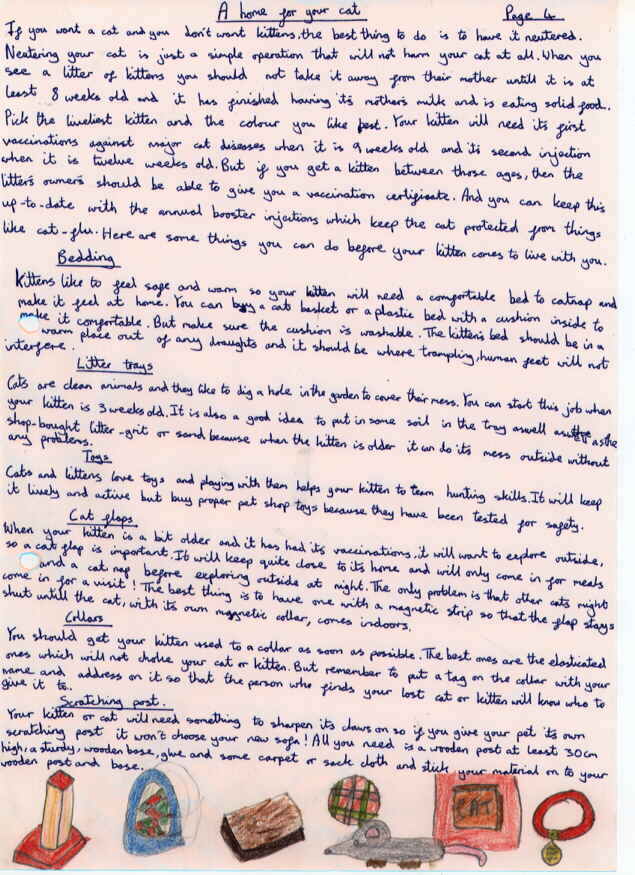 A home for your cat Page 4
If you want a cat and you don't want kittens, the best thing to do is to have it neutered.
Neutering your cat is just a simple operation that will not harm your cat at all. When you
see a litter of kittens you should not take it away from their mother untill it is at
least 8 weeks old and it has finished having its mothers milk and is eating solid food.
Pick the liveliest kitten and the colour you like best. Your kitten will need its first
vaccinations against major cat diseases when it is 9 weeks old and its second injection
when it is twelve weeks old. But if you get a kitten between those ages, then the
litters owners should be able to give you a vaccination certificate. And you can keep this
up-to-date with the annual booster injections which keep the cat protected from things
like cat-flu. Here are some things you can do before your kitten comes to live with you.
Bedding
Kittens like to feel safe and warm so your kitten will need a comfortable bed to catnap and
make it feel at home. You can buy a cat basket or a plastic bed with a cushion inside to
make it comfortable. But make sure the cushion is washable. The kitten's bed should be in a
warm place out of any draughts and it should be where trampling, human feet will not
interfere.
Litter trays
Cats are clean animals and they like to dig a hole in the garden to cover their mess. You can start this job when
your kitten is 3 weeks old. It is also a good idea to put in some soil in the tray aswell as the
shop-bought litter-grit or sand because when the kitten is older it can do its mess outside without
any problems.
Toys
Cats and kittens love toys and playing with them helps your kitten to learn hunting skills. It will keep
it lively and active but buy proper pet shop toys because they have been tested for safety.
Cat flaps
When your kitten is a bit older and it has had its vaccinations, it will want to explore outside,
so a cat flap is important. It will keep quite close to its home and will only come in for meals
and a cat nap before exploring outside at night. The only problem is that other cats might
come in for a visit! The best thing is to have one with a magnetic strip so that the flap stays
shut untill the cat, with its own magnetic collar, comes indoors.
Collars
You should get your kitten used to a collar as soon as possible. The best ones are the elasticated
ones which will not choke your cat or kitten. But remember to put a tag on the collar with your
name and address on it so that the person who finds your lost cat or kitten will know who to
give it to.
Scratching post.
Your kitten or cat will need something to sharpen its claws on so if you give your pet its own
scratching post it won't choose your new sofa! All you need is a wooden post at least 30cm
high, a sturdy, wooden base, glue and some carpet or sack cloth and stick your material on to your
wooden post and base.
CAT